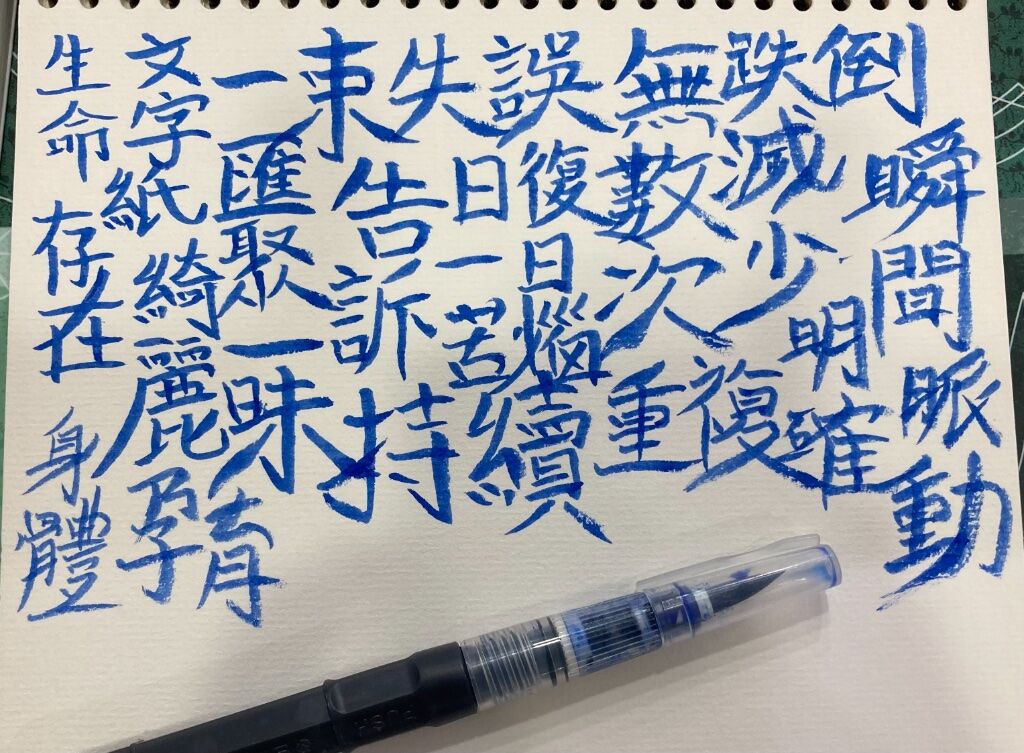 生命
存在
身體
文字
紙
綺麗
孕育
一束
匯聚
一昧
告訴
持續
失誤
日復
一日
苦惱
無數次
重複
跌倒
減少
明確
瞬間
脈動
PUSH